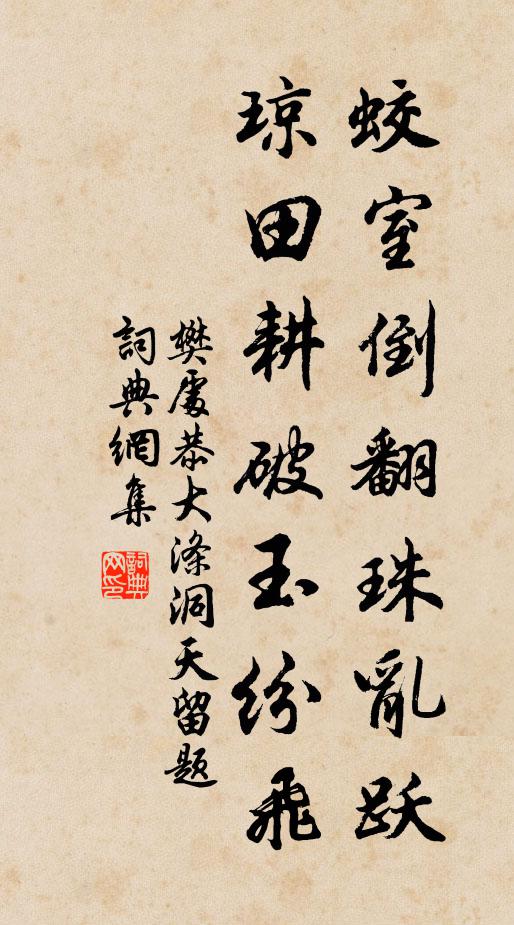 蛟室倒翻珠亂跃
琼田耕破玉纷飛
樊處恭大滌洞天留題
詞典網集
詞典网印